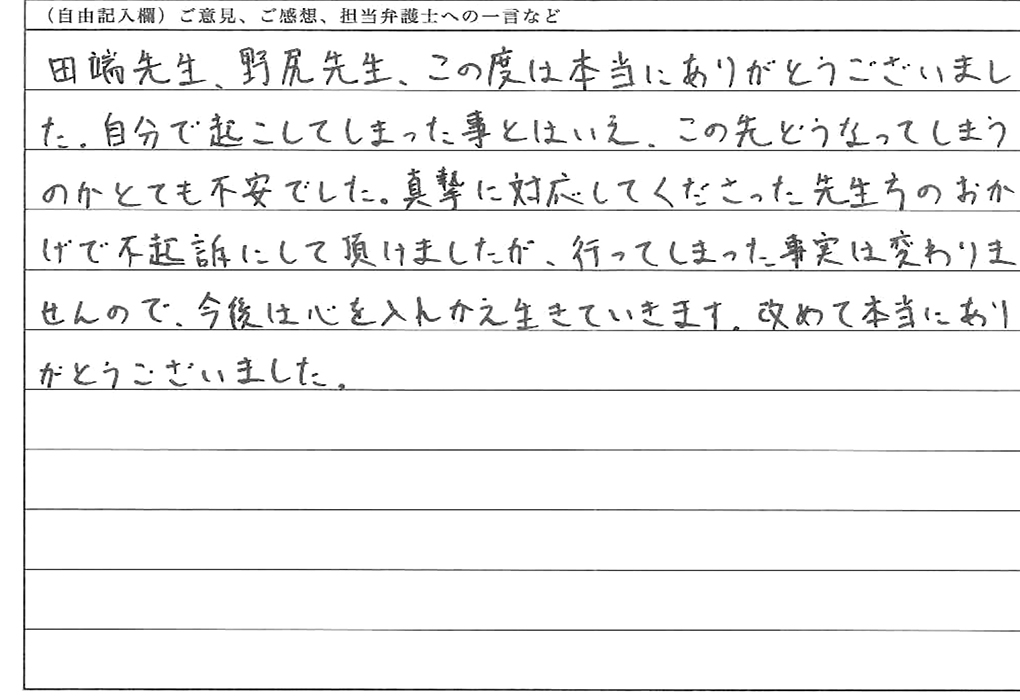 （自由記入欄）ご意見、ご感想、担当弁護士への一言など
田端先生、野尻先生、この度は本当にありがとうございまし
た。自分で起こしてしまった事とはいえ、この先どうなってしまう
のかとても不安でした。真摯に対応してくださった先生方のおか
げで不起訴にして頂けましたが、行ってしまった事実は変わりま
せんので、今後は心を入れかえ生きていきます。改めて本当にあり
がとうございました。